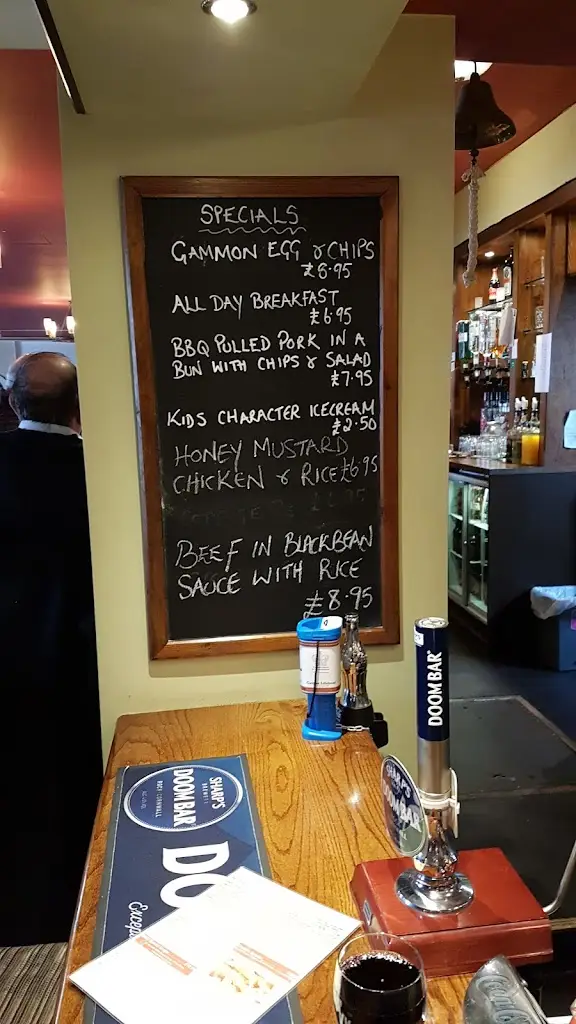 SPECIALS
GAMMON EGG & CHIPS
£6.95
ALL DAY BREAKFAST
£6.95
BBQ PULLED PORK IN A
BUN WITH CHIPS & SALAD
£7.95
KIDS CHARACTER ICECREAM
£2.50
HONEY MUSTARD
CHICKEN & RICE £6.95
BEEF IN BLACKBEAN
SAUCE WITH RICE
£8.95
DOOM BAR
SHARP'S
DOOM BAR
SHARP'S
BREWERY
DOOM BAR
ROCK CORNWALL
DO
Excep